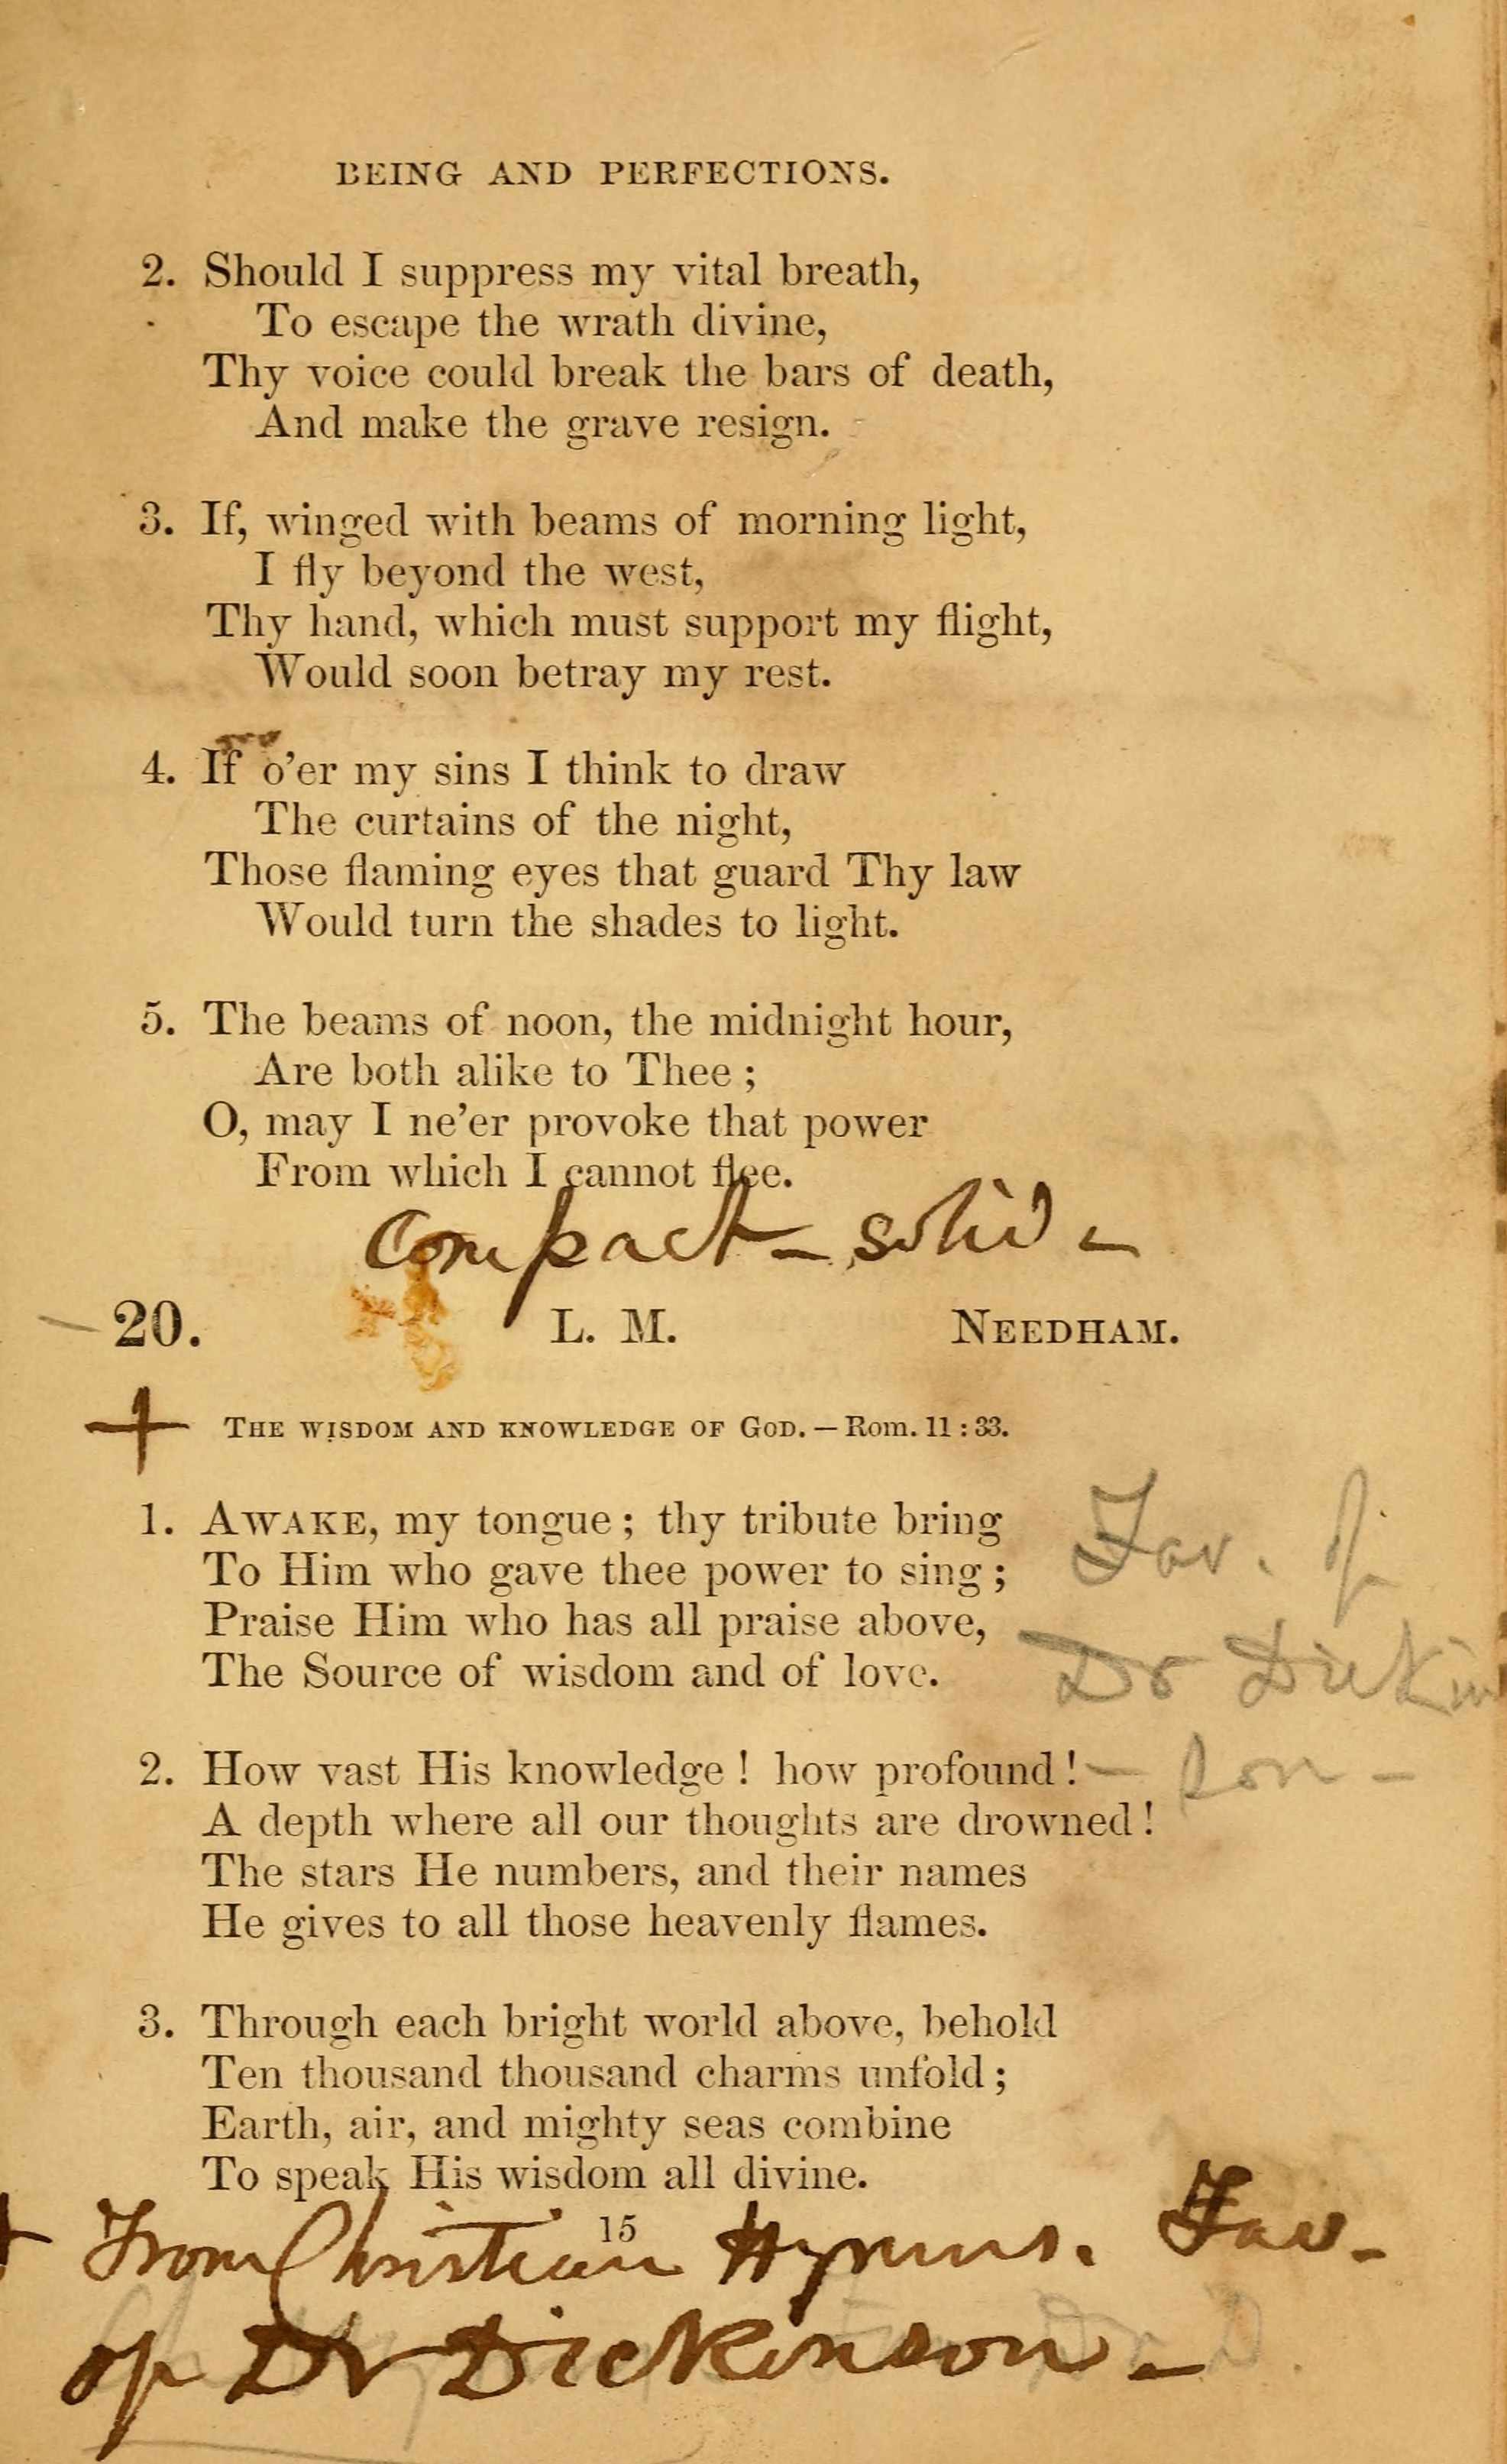 BEING AND PERFECTIONS.
2. Should I suppress my vital breath,
To escape the wrath divine,
Thy voice could break the bars of death,
And make the grave resign.
3. If, winged with beams of morning light,
I fly beyond the west,
Thy hand, which must support my flight,
Would soon betray my rest.
4. If o'er my sins I think to draw
The curtains of the night,
Those flaming eyes that guard Thy law
Would turn the shades to light.
5. The beams of noon, the midnight hour,
Are both alike to Thee;
O, may I ne'er provoke that power
From which I cannot flee.
Compact - solid -
20. L. M. NEEDHAM.
THE WISDOM AND KNOWLEDGE OF GOD. — Rom. 11:33.
1. AWAKE, my tongue; thy tribute bring
To Him who gave thee power to sing;
Praise Him who has all praise above,
The Source of wisdom and of love.
Fav. of
Dr Dickin
son -
2. How vast His knowledge! how profound!
A depth where all our thoughts are drowned!
The stars He numbers, and their names
He gives to all those heavenly flames.
3. Through each bright world above, behold
Ten thousand thousand charms unfold;
Earth, air, and mighty seas combine
To speak His wisdom all divine.
15
+ From Christian Hymns. Fav-
of Dr Dickinson -